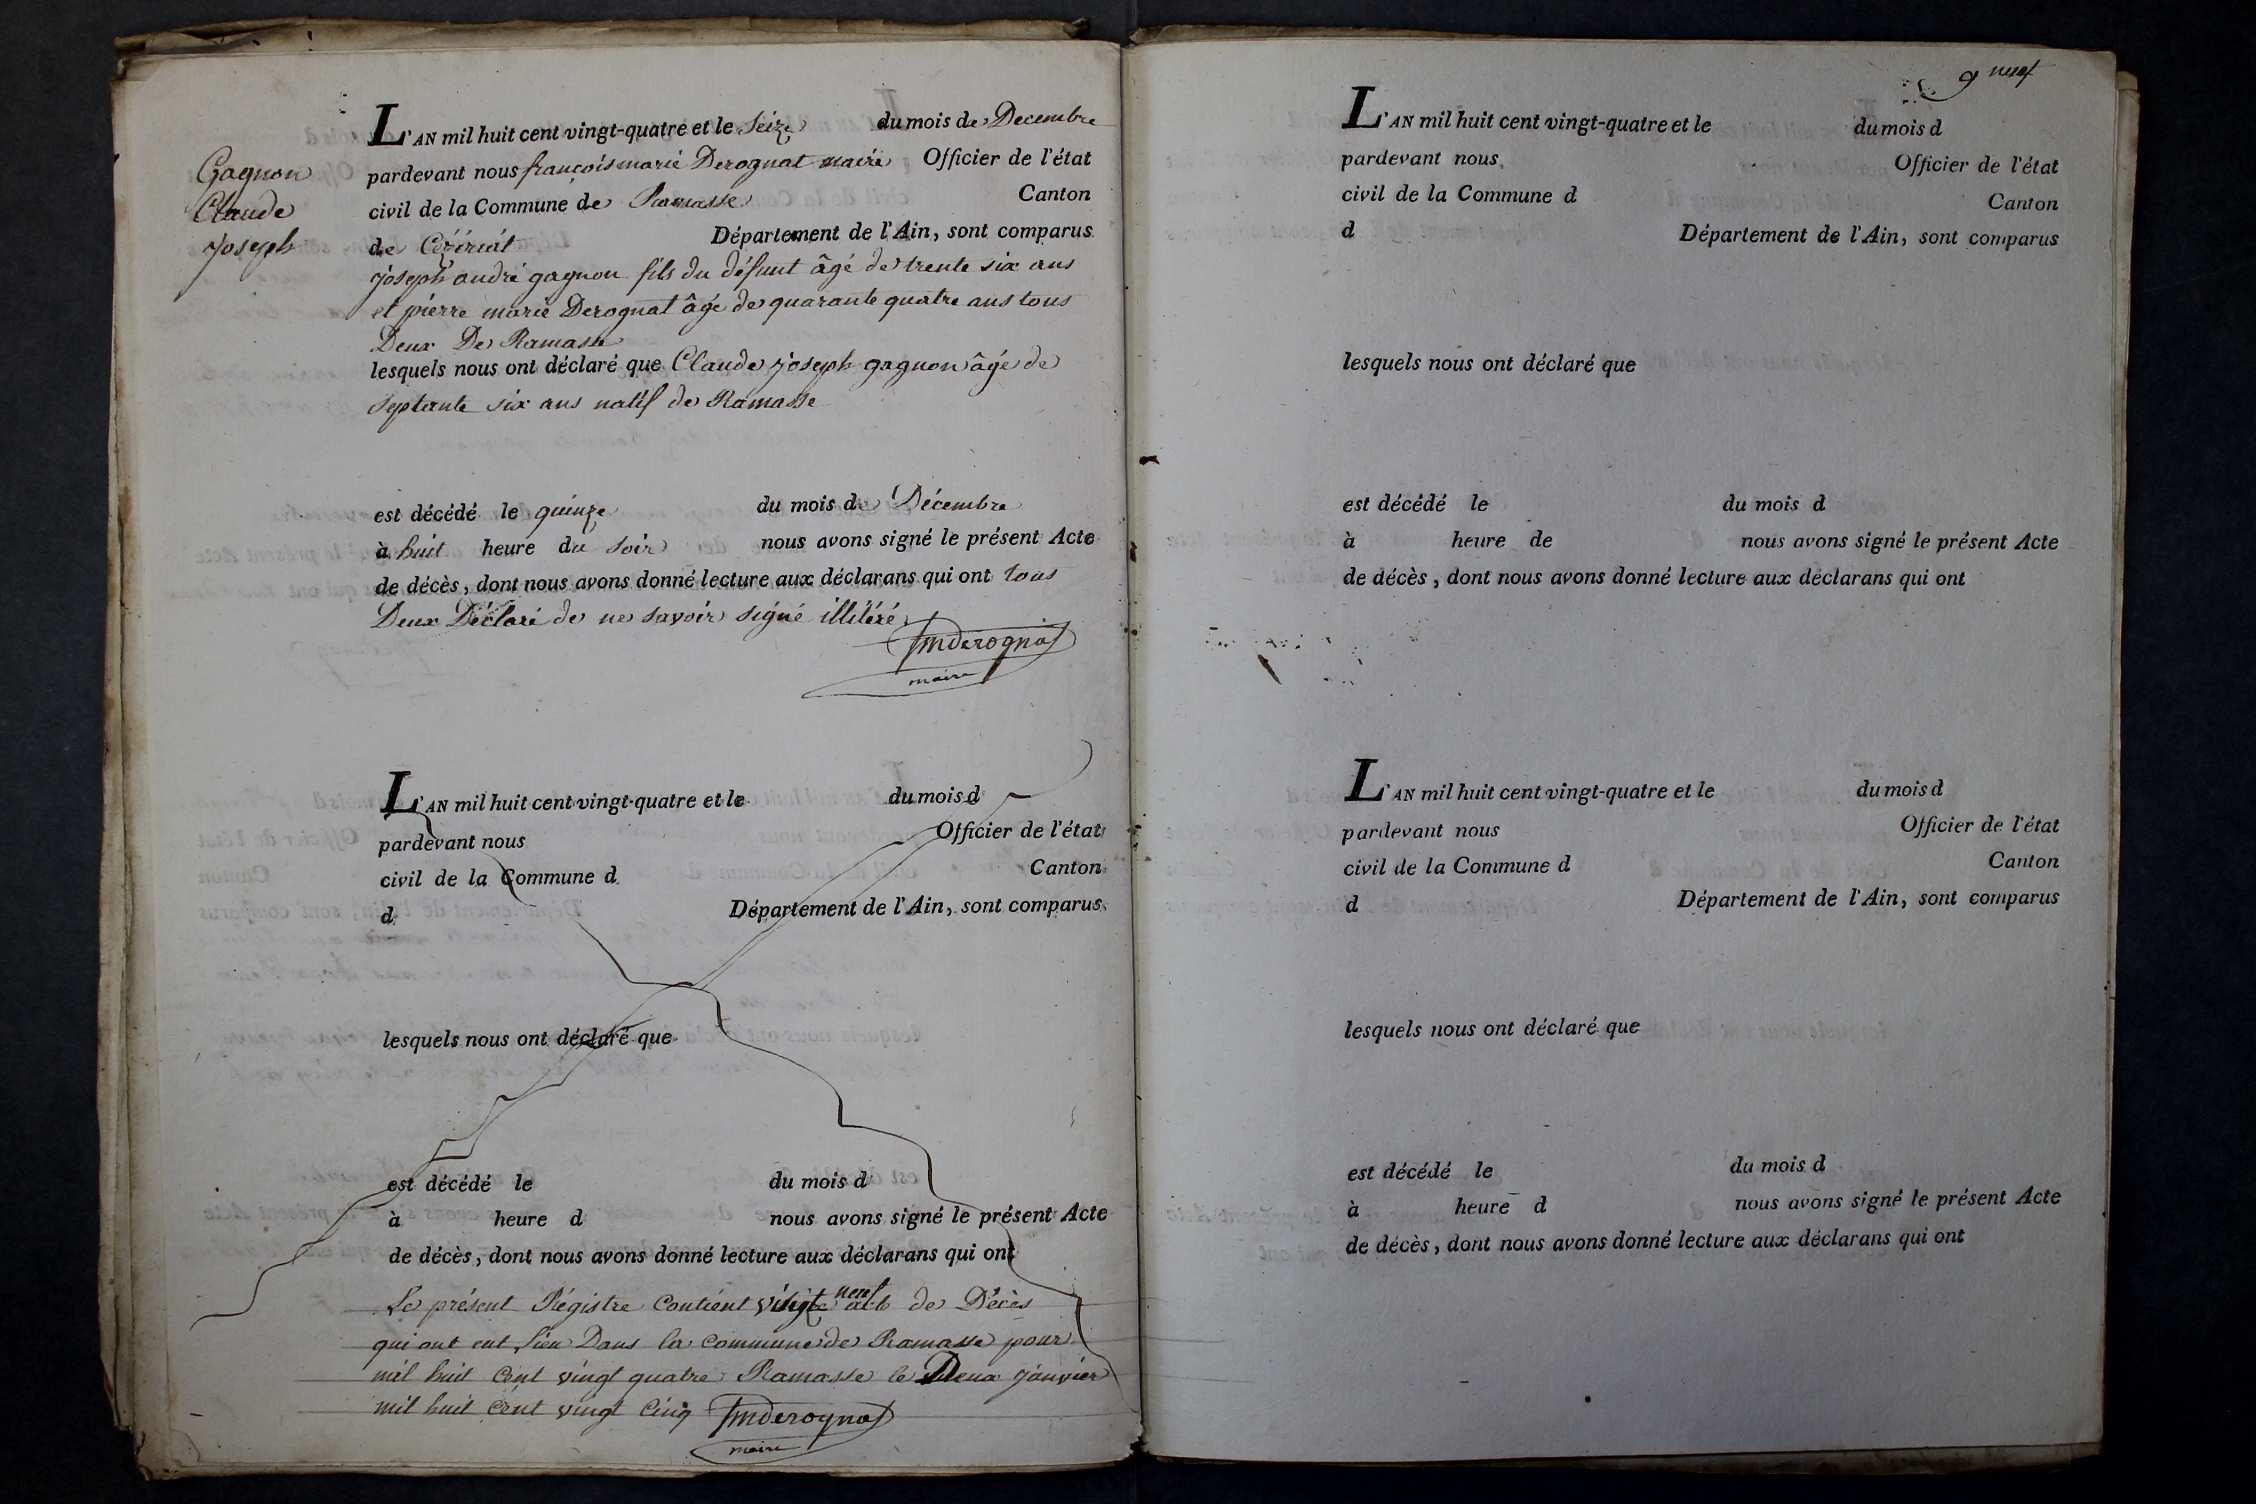 Gagnon
Claude
Joseph
L'AN mil huit cent vingt-quatre et le Seize du mois de Decembre
pardevant nous françois marie Derognat maire Officier de l'état
civil de la Commune de Ramasse Canton
de Cézériat Département de l'Ain, sont comparus
joseph andré gagnon fils du défunt âgé de trente six ans
et pierre marie Derognat âgé de quarante quatre ans tous
Deux De Ramasse
lesquels nous ont déclaré que Claude joseph gagnon âgé de
septante six ans natif de Ramasse
est décédé le quinze du mois de Décembre
à huit heure du soir nous avons signé le présent Acte
de décès, dont nous avons donné lecture aux déclarans qui ont tous
Deux Déclaré de ne savoir signé illitéré
fmderognat
maire
L'AN mil huit cent vingt-quatre et le du mois d
pardevant nous Officier de l'état
civil de la Commune d Canton
d Département de l'Ain, sont comparus
lesquels nous ont déclaré que
est décédé le du mois d
à heure d nous avons signé le présent Acte
de décès, dont nous avons donné lecture aux déclarans qui ont
Le présent Régistre Contient neuf act de Décès
qui ont eut lieu Dans la commune de Ramasse pour
mil huit Cent vingt quatre Ramasse le Deux janvier
mil huit Cent vingt Cinq fmderognat
maire
9 neuf
L'AN mil huit cent vingt-quatre et le du mois d
pardevant nous Officier de l'état
civil de la Commune d Canton
d Département de l'Ain, sont comparus
lesquels nous ont déclaré que
est décédé le du mois d
à heure de nous avons signé le présent Acte
de décès, dont nous avons donné lecture aux déclarans qui ont
L'AN mil huit cent vingt-quatre et le du mois d
pardevant nous Officier de l'état
civil de la Commune d Canton
d Département de l'Ain, sont comparus
lesquels nous ont déclaré que
est décédé le du mois d
à heure d nous avons signé le présent Acte
de décès, dont nous avons donné lecture aux déclarans qui ont